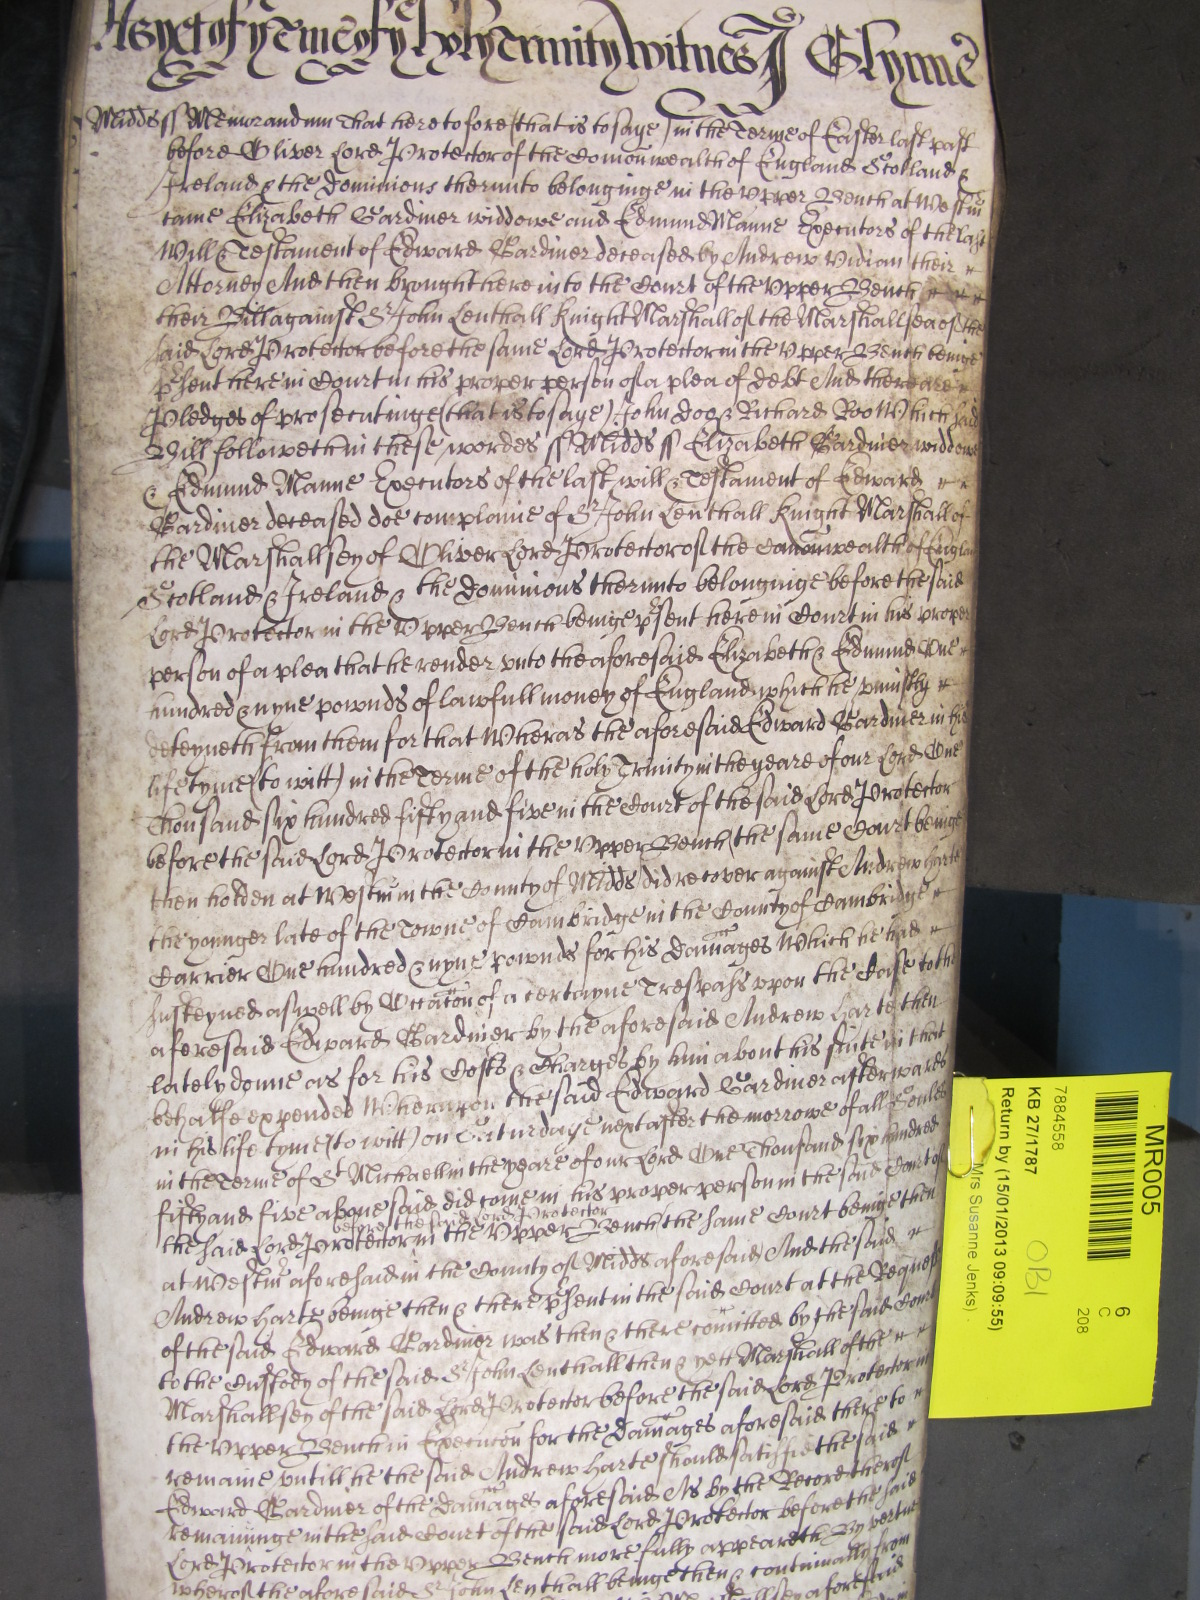 As yet of ye Terme of ye holy Trinity witnes J Glynne
Midds ss Memorandum That heretofore (that is to saye) in the Terme of Easter last past
before Oliver Lord Protector of the Comonwealth of England Scotland &
Ireland & the Dominions therunto belonginge in the Upper Bench at Westmr
came Elizabeth Gardiner widdowe and Edmund Manne Executors of the last
Will & Testament of Edward Gardiner deceased by Andrew Vidian their
Attorney And then brought here into the Court of the Upper Bench
their Bill against Sr John Lenthall Knight Marshall of the Marshallsea of the
said Lord Protector before the same Lord Protector in the Upper Bench beinge
psent here in Court in his proper person of a plea of debt And there are
Pledges of prosecutinge (that is to saye) John Doo & Richard Roo Which said
Bill followeth in these wordes ss Midds ss Elizabeth Gardiner widdowe
& Edmund Manne Executors of the last will & Testament of Edward
Gardiner deceased doe complaine of Sr John Lenthall Knight Marshall of
the Marshallsey of Oliver Lord Protector of the Comonwealth of England
Scotland & Ireland & the Dominions therunto belonginge before the said
Lord Protector in the Upper Bench beinge psent here in Court in his proper
person of a plea that he render unto the aforesaid Elizabeth & Edmund One
hundred & nyne pownds of lawfull money of England which he uniustly
deteyneth from them for that Wheras the aforesaid Edward Gardiner in his
life tyme (to witt) in the Terme of the holy Trinity in the yeare of our Lord One
Thousand six hundred fifty and five in the Court of the said Lord Protector
before the said Lord Protector in the Upper Bench (the same Court beinge
then holden at Westmr in the County of Midds) did recover against Andrew Harte
the younger late of the Towne of Cambridge in the County of Cambridge
Carrier One hundred & nyne pownds for his Damages Which he had
susteyned aswell by Occacon of a certayne Trespass uppon the Case to the
aforesaid Edward Gardiner by the aforesaid Andrew Harte then
lately donne as for his Costs & Charges by him about his suite in that
behalfe expended Wherupon the said Edward Gardiner afterwards
in his life tyme (to witt) on Saturdaye next after the morrowe of all Soules
in the Terme of St Michaell in the yeare of our Lord One Thousand six hundred
fifty and five abovesaid did come in his proper person in the said Court of
before the said Lord Protector
the said Lord Protector in the Upper Bench the same Court beinge then
at Westmr aforesaid in the County of Midds aforesaid And the said
Andrew Harte beinge then & there psent in the said Court at the Request
of the said Edward Gardiner was then & there comitted by the said Court
to the Custody of the said Sr John Lenthall then & yett Marshall of the
Marshallsey of the said Lord Protector before the said Lord Protector in
the Upper Bench in Execucon for the Damages aforesaid there to
remaine untill he the said Andrew Harte should satisfie the said
Edward Gardiner of the Damages aforesaid As by the Record therof
remaininge in the said Court of the said Lord Protector before the said
Lord Protector in the Upper Bench more fully appeareth By vertue
wherof the aforesaid Sr John Lenthall beinge then & continually from
MR005
6
C
208
7884558
KB 27/1787
OBI
Return by (15/01/2013 09:09:55)
Mrs Susanne Jenks)